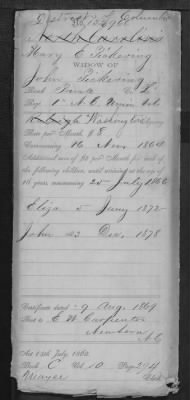 District of Columbia
North Carolina
Mary E. Pickering
WIDOW OF
John Pickering
Rank Private Co. I
Regt. 1" N.C. Union Vols
Raleigh Washington Agency
Rate per Month, $ 8
Commencing 16 Nov 1864
Additional sum of $2 per Month for each of
the following children, until arriving at the age of
16 years, commencing 25 July 1866
Eliza 5 Juny 1872
John 23 Dec. 1878
Certificate dated 9 Aug. 1869
E. W. Carpenter
Newbern
N.C
Act 14th July, 1862.
Book C Vol. 10 Page 294
Clerk